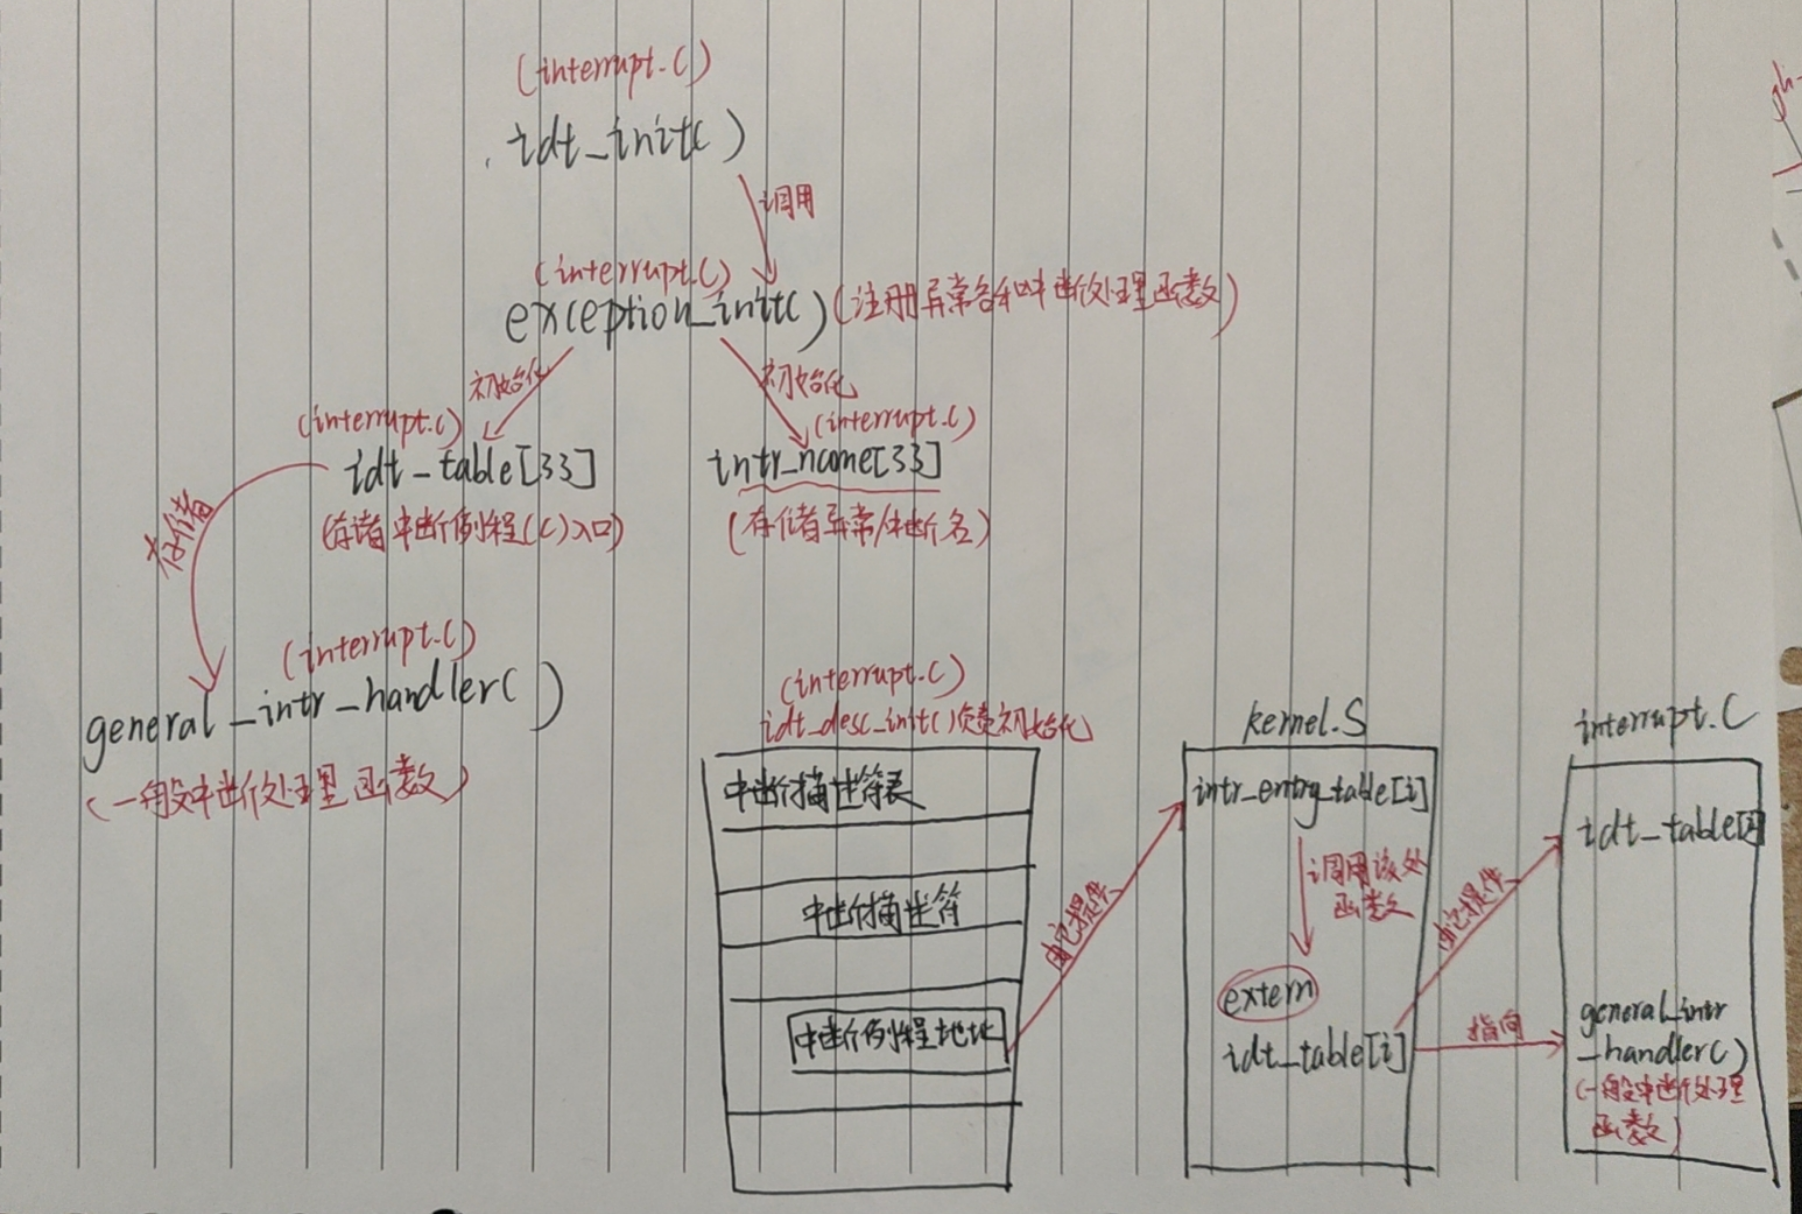 (interrupt.c)
idt_init()
调用
(interrupt.c)
exception_init() (注册异常名和中断处理函数)
初始化
初始化
(interrupt.c)
(interrupt.c)
idt_table[33]
intr_name[33]
(存储中断例程(C)入口)
(存储异常/中断名)
存储
(interrupt.c)
general_intr_handler()
(一般中断处理函数)
(interrupt.c)
idt_desc_init()负责初始化
中断描述符表
中断描述符
中断例程地址
由它提供
kernel.S
intr_entry_table[i]
调用该处
函数
extern
idt_table[i]
由它提供
指向
interrupt.C
idt_table[i]
general_intr
_handler()
(一般中断处理
函数)